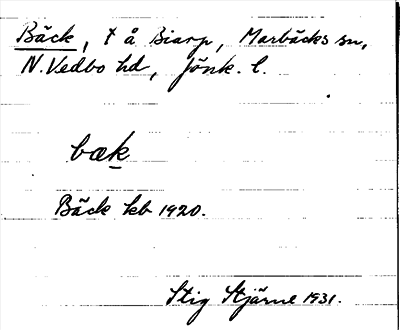 Bäck, t å Biarp, Marbäcks sn,
N. Vedbo hd, Jönk. l.
bœk
Bäck kb 1920.
Stig Stjärne 1931.